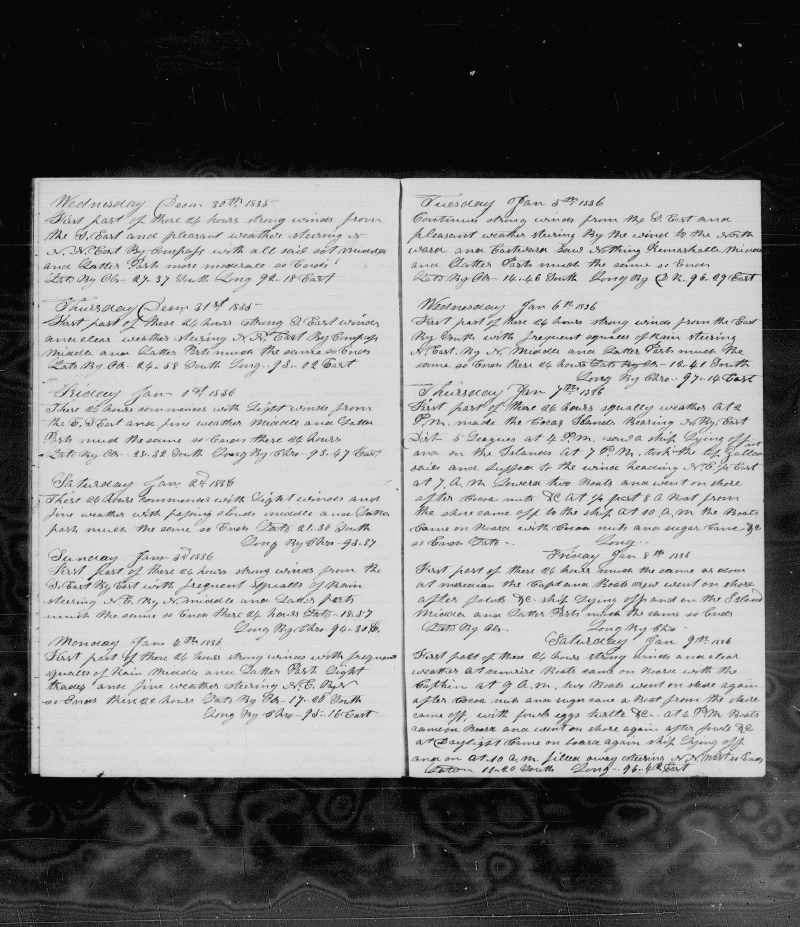 Wednesday Decm 30th 1835
First part of these 24 hours strong winds from
the S. East and pleasant weather steering
N. N. East By Compass with all sail set Middle
and Latter Parts more moderate so Ends
Lat. By Obs 27-37 South Long 92-18 East
Thursday Decm 31st 1835
First part of these 24 hours strong S East winds
and clear weather steering N. N. East By Compass
Middle and Latter Parts much the same so Ends
Lat. By Obs- 24-58 South Long- 93-02 East
Friday Jan 1st 1836
These 24 hours commences with Light winds from
the E. S East and fine weather Middle and Latter
Parts much the same so Ends these 24 hours
Lat. By Obs- 23-32 South Long By Chro- 93-47 East
Saturday Jan 2nd 1836
These 24 hours commences with Light winds and
fine weather with passing clouds middle and Latter
parts much the same so Ends Lat. 21-30 South
Long By Chro- 93-37
Sunday Jan 3rd 1836
First part of these 24 hours strong winds from the
S. East By East with frequent squalls of Rain
steering N. E. By N. middle and Latter parts
much the same so Ends these 24 hours Lat.- 18-57
Long By Chro- 94-31 E.
Monday Jan 4th 1836
First part of these 24 hours strong winds with frequent
squalls of Rain Middle and Latter Part Light
trades and fine weather steering N. E. By N
so Ends these 24 hours Lat. By Obs- 17-28 South
Long By Chro- 95-16 East
Tuesday Jan 5th 1836
Continues strong winds from the S. East and
pleasant weather steering By the wind to the North
ward and Eastward saw Nothing Remarkable Middle
and Latter Parts much the same so Ends
Lat. By Obs- 14-46 South Long By D R. 96-29 East
Wednesday Jan 6th 1836
First part of these 24 hours strong winds from the East
By South with frequent squalls of Rain steering
N. East. By N. Middle and Latter Parts much the
same so Ends these 24 hours Lat. By Obs- 12-41 South
Long By Chro- 97-14 East
Thursday Jan 7th 1836
First part of these 24 hours squally weather At 2
P.M. made the Cocas Islands Bearing N. By East
Dist 5 Leagues at 4 P.M. saw a ship Lying off
and on the Islands At 7 P.M. took the top Gallant
sails and Luffed to the wind heading N.E. 1/2 East
at 7, A.M. Lowerd two Boats and went on shore
after Cocoa nuts &C At 1/2 past 8 A Boat from
the shore came off to the ship At 10 A.M the Boats
Came on Board with Cocoa nuts and sugar Cane &C
so Ends Lat.- Long-
Friday Jan 8th 1836
First part of these 24 hours much the same as above
at meredian the Capt and Boats crew went on shore
after fowls &C- ship Lying off and on the Island
Middle and Latter Parts much the same so Ends
Lat. By Obs- Long By Chro-
Saturday Jan 9th 1836
First part of these 24 hours strong winds and clear
weather at sunrise Boats came on Board with the
Captain at 9 A.M. two Boats went on shore again
after Cocoa nuts and sugar cane a Boat from the shore
came off, with fowls eggs turtle &C- at 4 P.M Boats
came on Board and went on shore again after fowls &C
at Daylight Came on board again ship Lying off
and on at 10 A.M. filled away steering N. N. West so Ends
11-20 South Long- 96-42 East